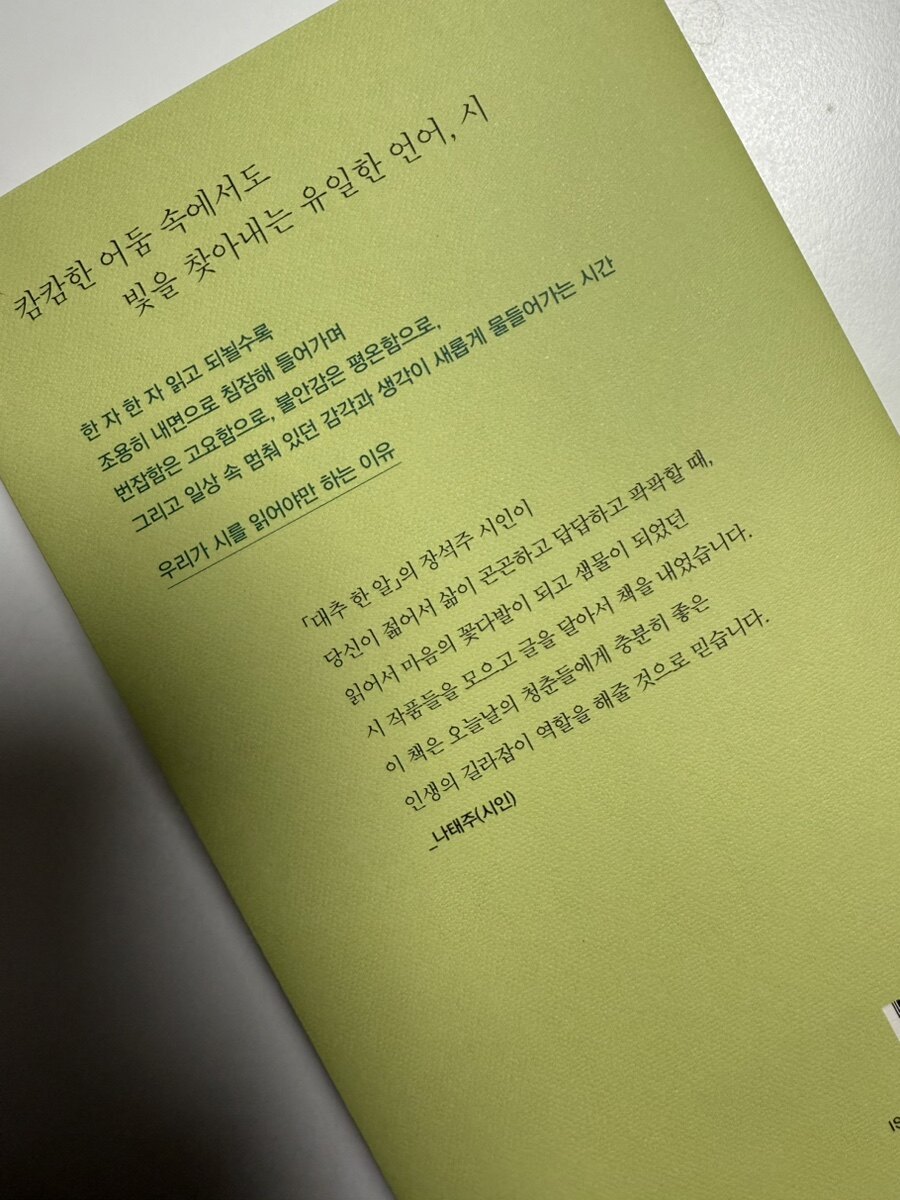 캄캄한 어둠 속에서도
빛을 찾아내는 유일한 언어, 시
한 자 한 자 읽고 되뇔수록
조용히 내면으로 침잠해 들어가며
번잡함은 고요함으로, 불안감은 평온함으로,
그리고 일상 속 멈춰 있던 감각과 생각이 새롭게 물들어가는 시간
우리가 시를 읽어야만 하는 이유
「대추 한 알」의 장석주 시인이
당신이 젊어서 삶이 곤곤하고 답답하고 팍팍할 때,
읽어서 마음의 꽃다발이 되고 샘물이 되었던
시 작품들을 모으고 글을 달아서 책을 내었습니다.
이 책은 오늘날의 청춘들에게 충분히 좋은
인생의 길라잡이 역할을 해줄 것으로 믿습니다.
_나태주(시인)
IS